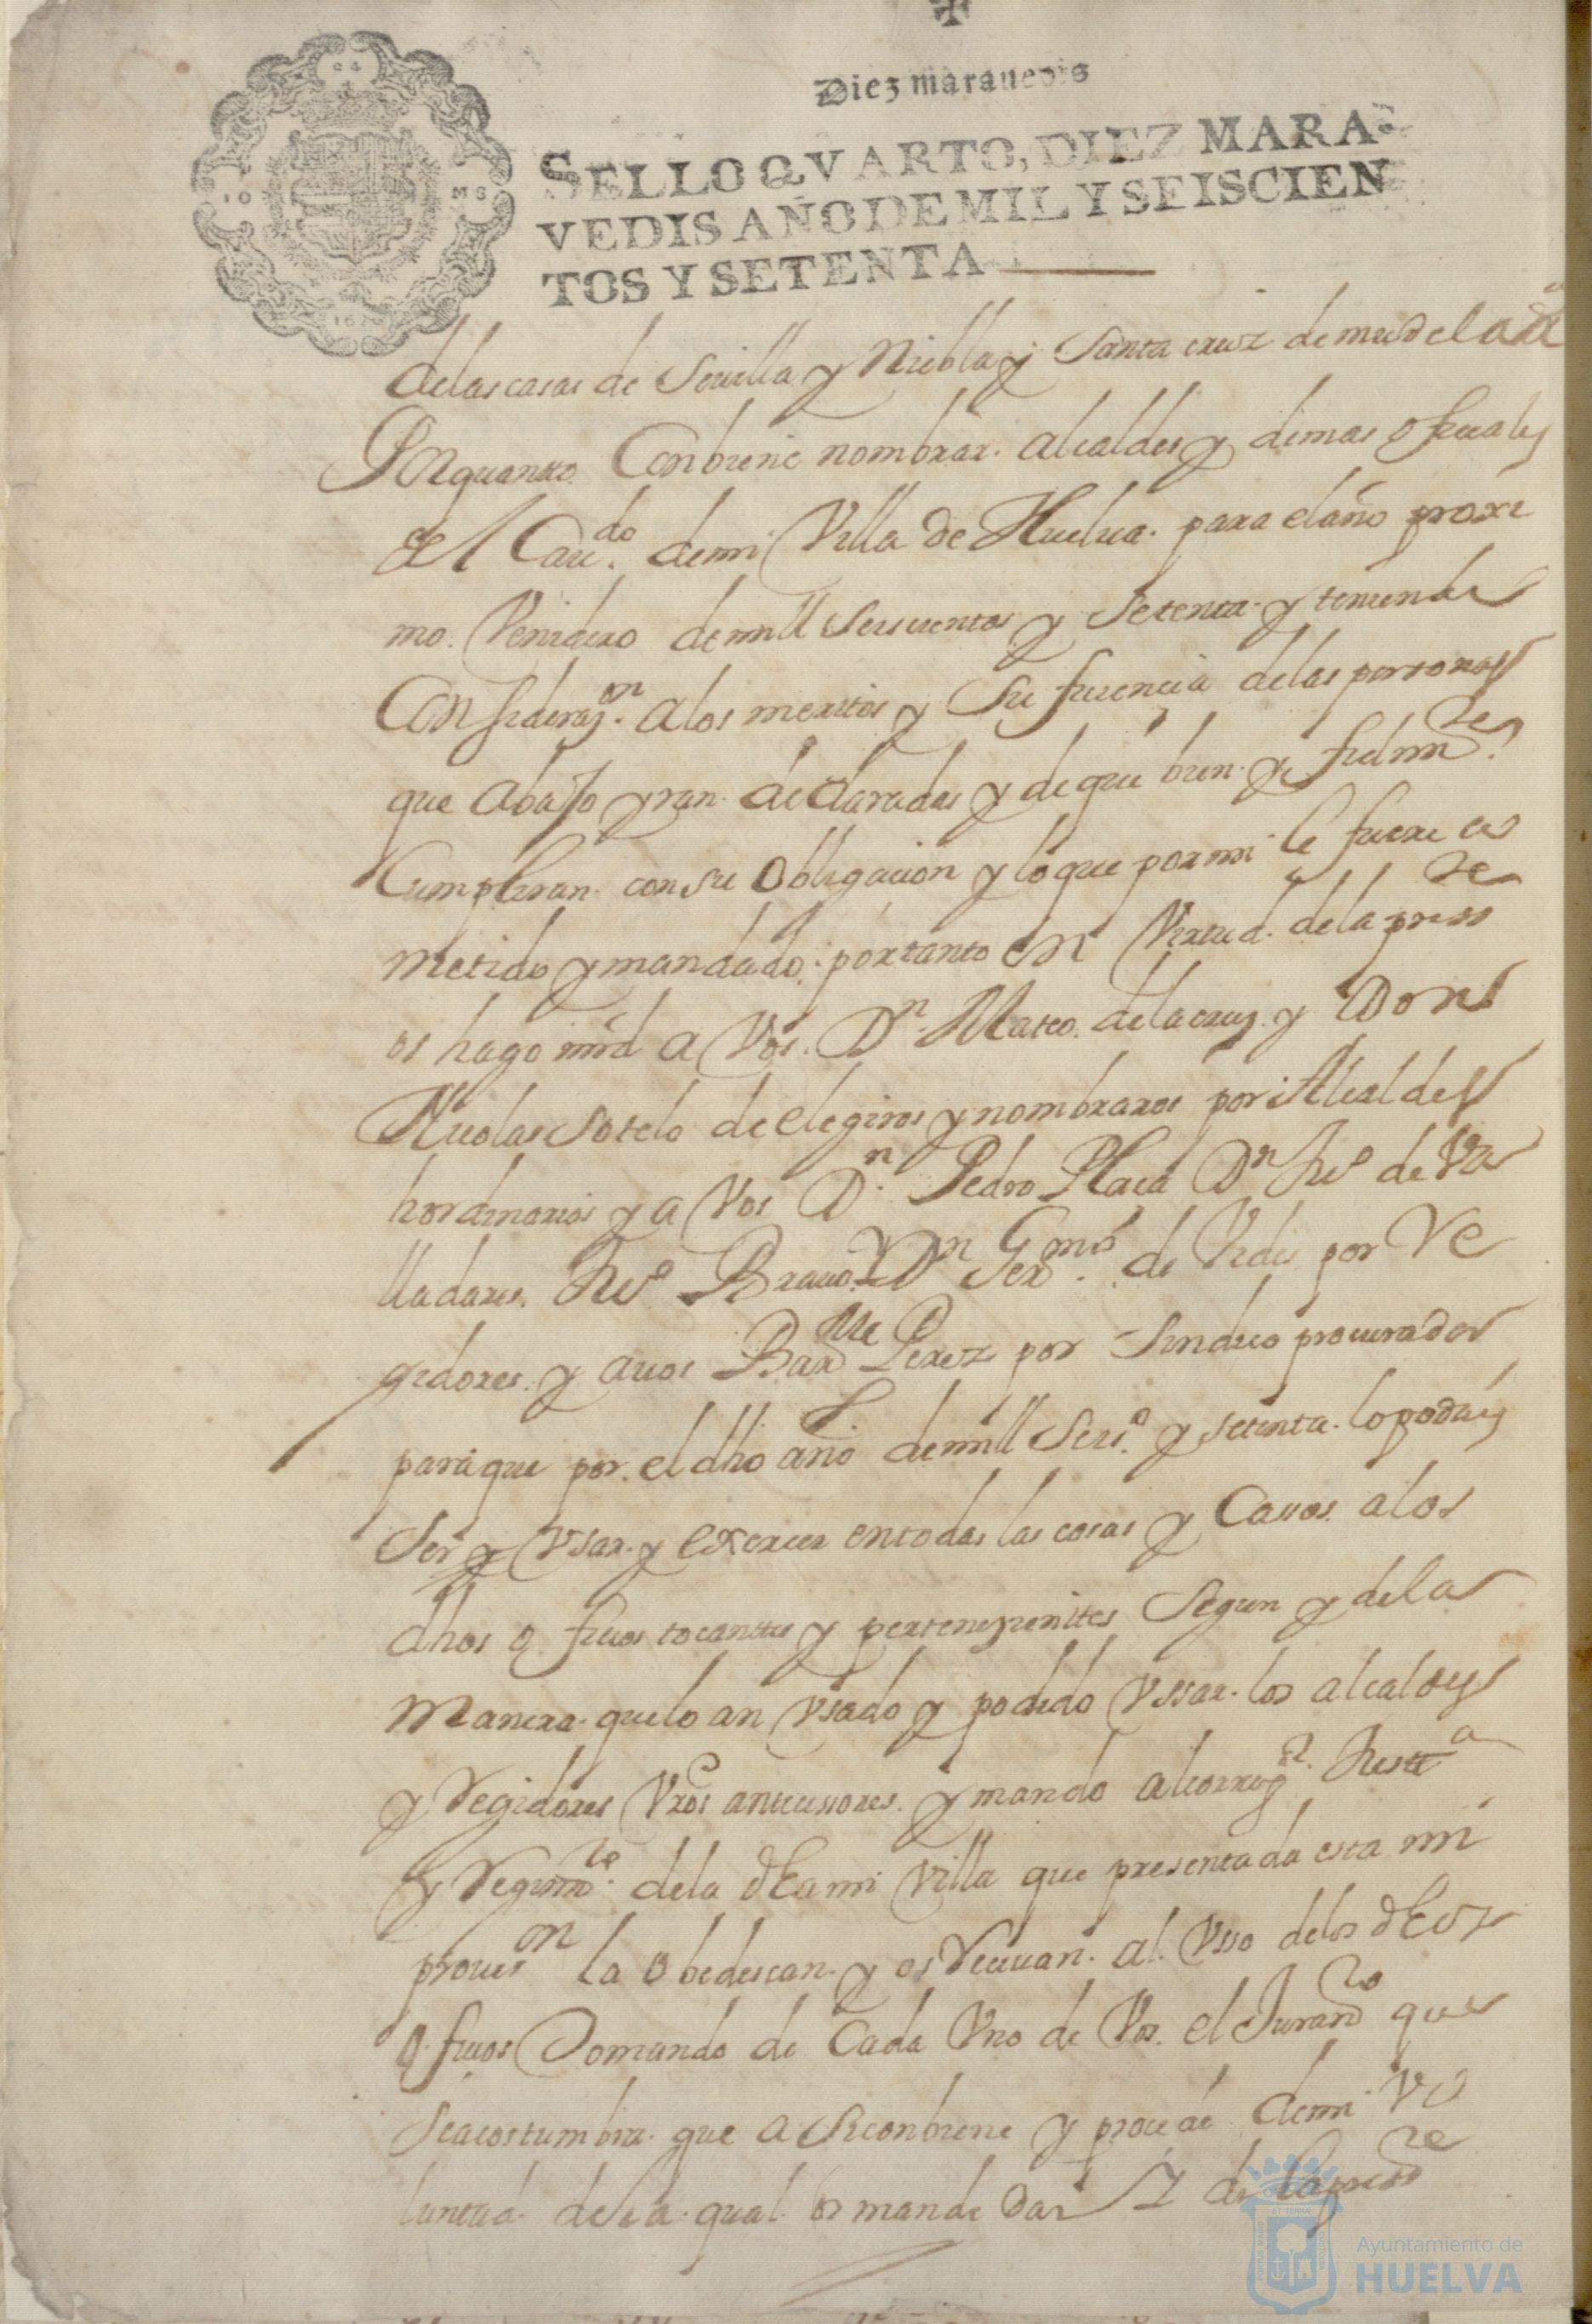 Diez maravedis
SELLO QVARTO, DIEZ MARA-
VEDIS AÑO DE MIL Y SEISCIEN
TOS Y SETENTA
de las casas de Sevilla y Niebla y Santa cruz de mudela &a
Por quanto Conbiene nombrar. alcaldes y demas ofiçiales
del Caudo. de mi Villa de Huelua. para el año proxi
mo. Venidero de mill seiscientos y setenta y teniendo
Considerazon. a los meritos y suficiencia de las personas
que abajo yran declaradas y de que bien y fielmte.
Cumpliran con su obligacion y lo que por mi le fuere co
metido y mandado. por tanto en Virtud. de la presste
os hago mrd a Vos. Dn. Mateo de la cruz y Don
Nicolas sotelo de elegiros y nombraros por Alcaldes
hordinarios y a Vos Dn. Pedro Plaça Dn Juo de Va
lladares. Juo Brauo. Y Dn Germo. de Vides por Re
gidores. y a uos Barme Perez por Sindico procurador
para que por el dho año de mill seiso. y setenta lo podais
Ser y Vsar. y exercer en todas las cosas y Casos. a los
dhos ofiçios tocantes y perteneçientes segun y de la
manera que lo an Vsado y podido Vssar. los alcaldes
y Regidores Vros antecessores. y mando al corregr. Justa
y Regimto. de la dha mi Villa que presentada esta mi
prouison la obedescan y os Reciuan. al Vsso de los dhos
ofiçios Tomando de Cada Vno de Vos. el Juramto que
se acostumbra. que asi conbiene y proçede de mi Vo
luntad. de la qual os mande dar la presste
Ayuntamiento de
HUELVA